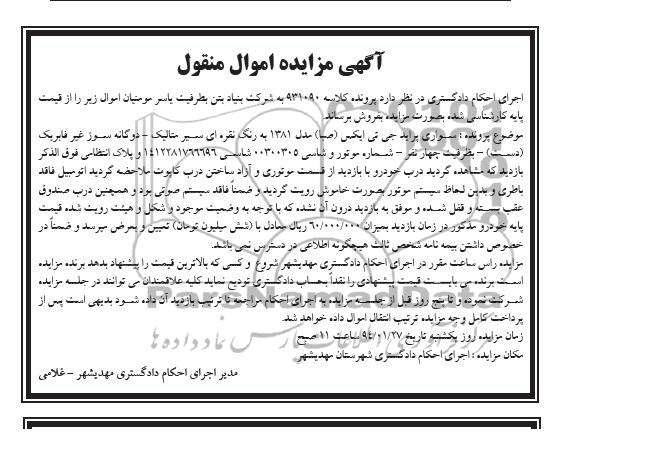 آگهی مزایده اموال منقول
اجرای احکام دادگستری در نظر دارد پرونده کلاسه ۹۳۱۰۹۰ به شرکت بنیاد بتن بطرفیت یاسر مومنیان اموال زیر را از قیمت
پایه کارشناسی شده بصورت مزایده بفروش برساند.
موضوع پرونده : سواری پراید جی تی ایکس (صبا) مدل ۱۳۸۱ به رنگ نقره ای سیر متالیک – دوگانه سوز غیر فابریک
(دستی) – بظرفیت چهار نفر – شماره موتور و شاسی ۰۰۳۰۰۳۰۵ شاسی ۱۴۱۲۲۸۱۷۶۶۶۹۶ و پلاک انتظامی فوق الذکر
بازدید که مشاهده گردید درب خودرو با بازدید از قسمت موتوری و آزاد ساختن درب کاپوت ملاحضه گردید اتومبیل فاقد
باطری و بدین لحاظ سیستم موتور بصورت خاموش رویت گردید و ضمناً فاقد سیستم صوتی بود و همچنین درب صندوق
عقب بسته و قفل شده و موفق به بازدید درون آن نشده که با توجه به وضعیت موجود و شکل و هیئت رویت شده قیمت
پایه خودرو مذکور در زمان بازدید بمیزان ۶۰/۰۰۰/۰۰۰ ریال معادل با (شش میلیون تومان) تعیین و بعرض میرسد و ضمناً در
خصوص داشتن بیمه نامه شخص ثالث هیچگونه اطلاعی در دسترس نمی باشد.
مزایده راس ساعت مقرر در اجرای احکام دادگستری مهدیشهر شروع و کسی که بالاترین قیمت را پیشنهاد بدهد برنده مزایده
است برنده می بایست قیمت پیشنهادی را نقداً بحساب دادگستری تودیع نماید کلیه علاقمندان می توانند در جلسه مزایده
شرکت نموده و تا پنج روز قبل از جلسه مزایده به اجرای احکام مراجعه تا ترتیب بازدید آن داده شود بدیهی است پس از
پرداخت کامل وجه مزایده ترتیب انتقال اموال داده خواهد شد.
زمان مزایده روز یکشنبه تاریخ ۹۴/۰۱/۲۷ ساعت ۱۱ صبح
مکان مزایده : اجرای احکام دادگستری شهرستان مهدیشهر
مدیر اجرای احکام دادگستری مهدیشهر – غلامی